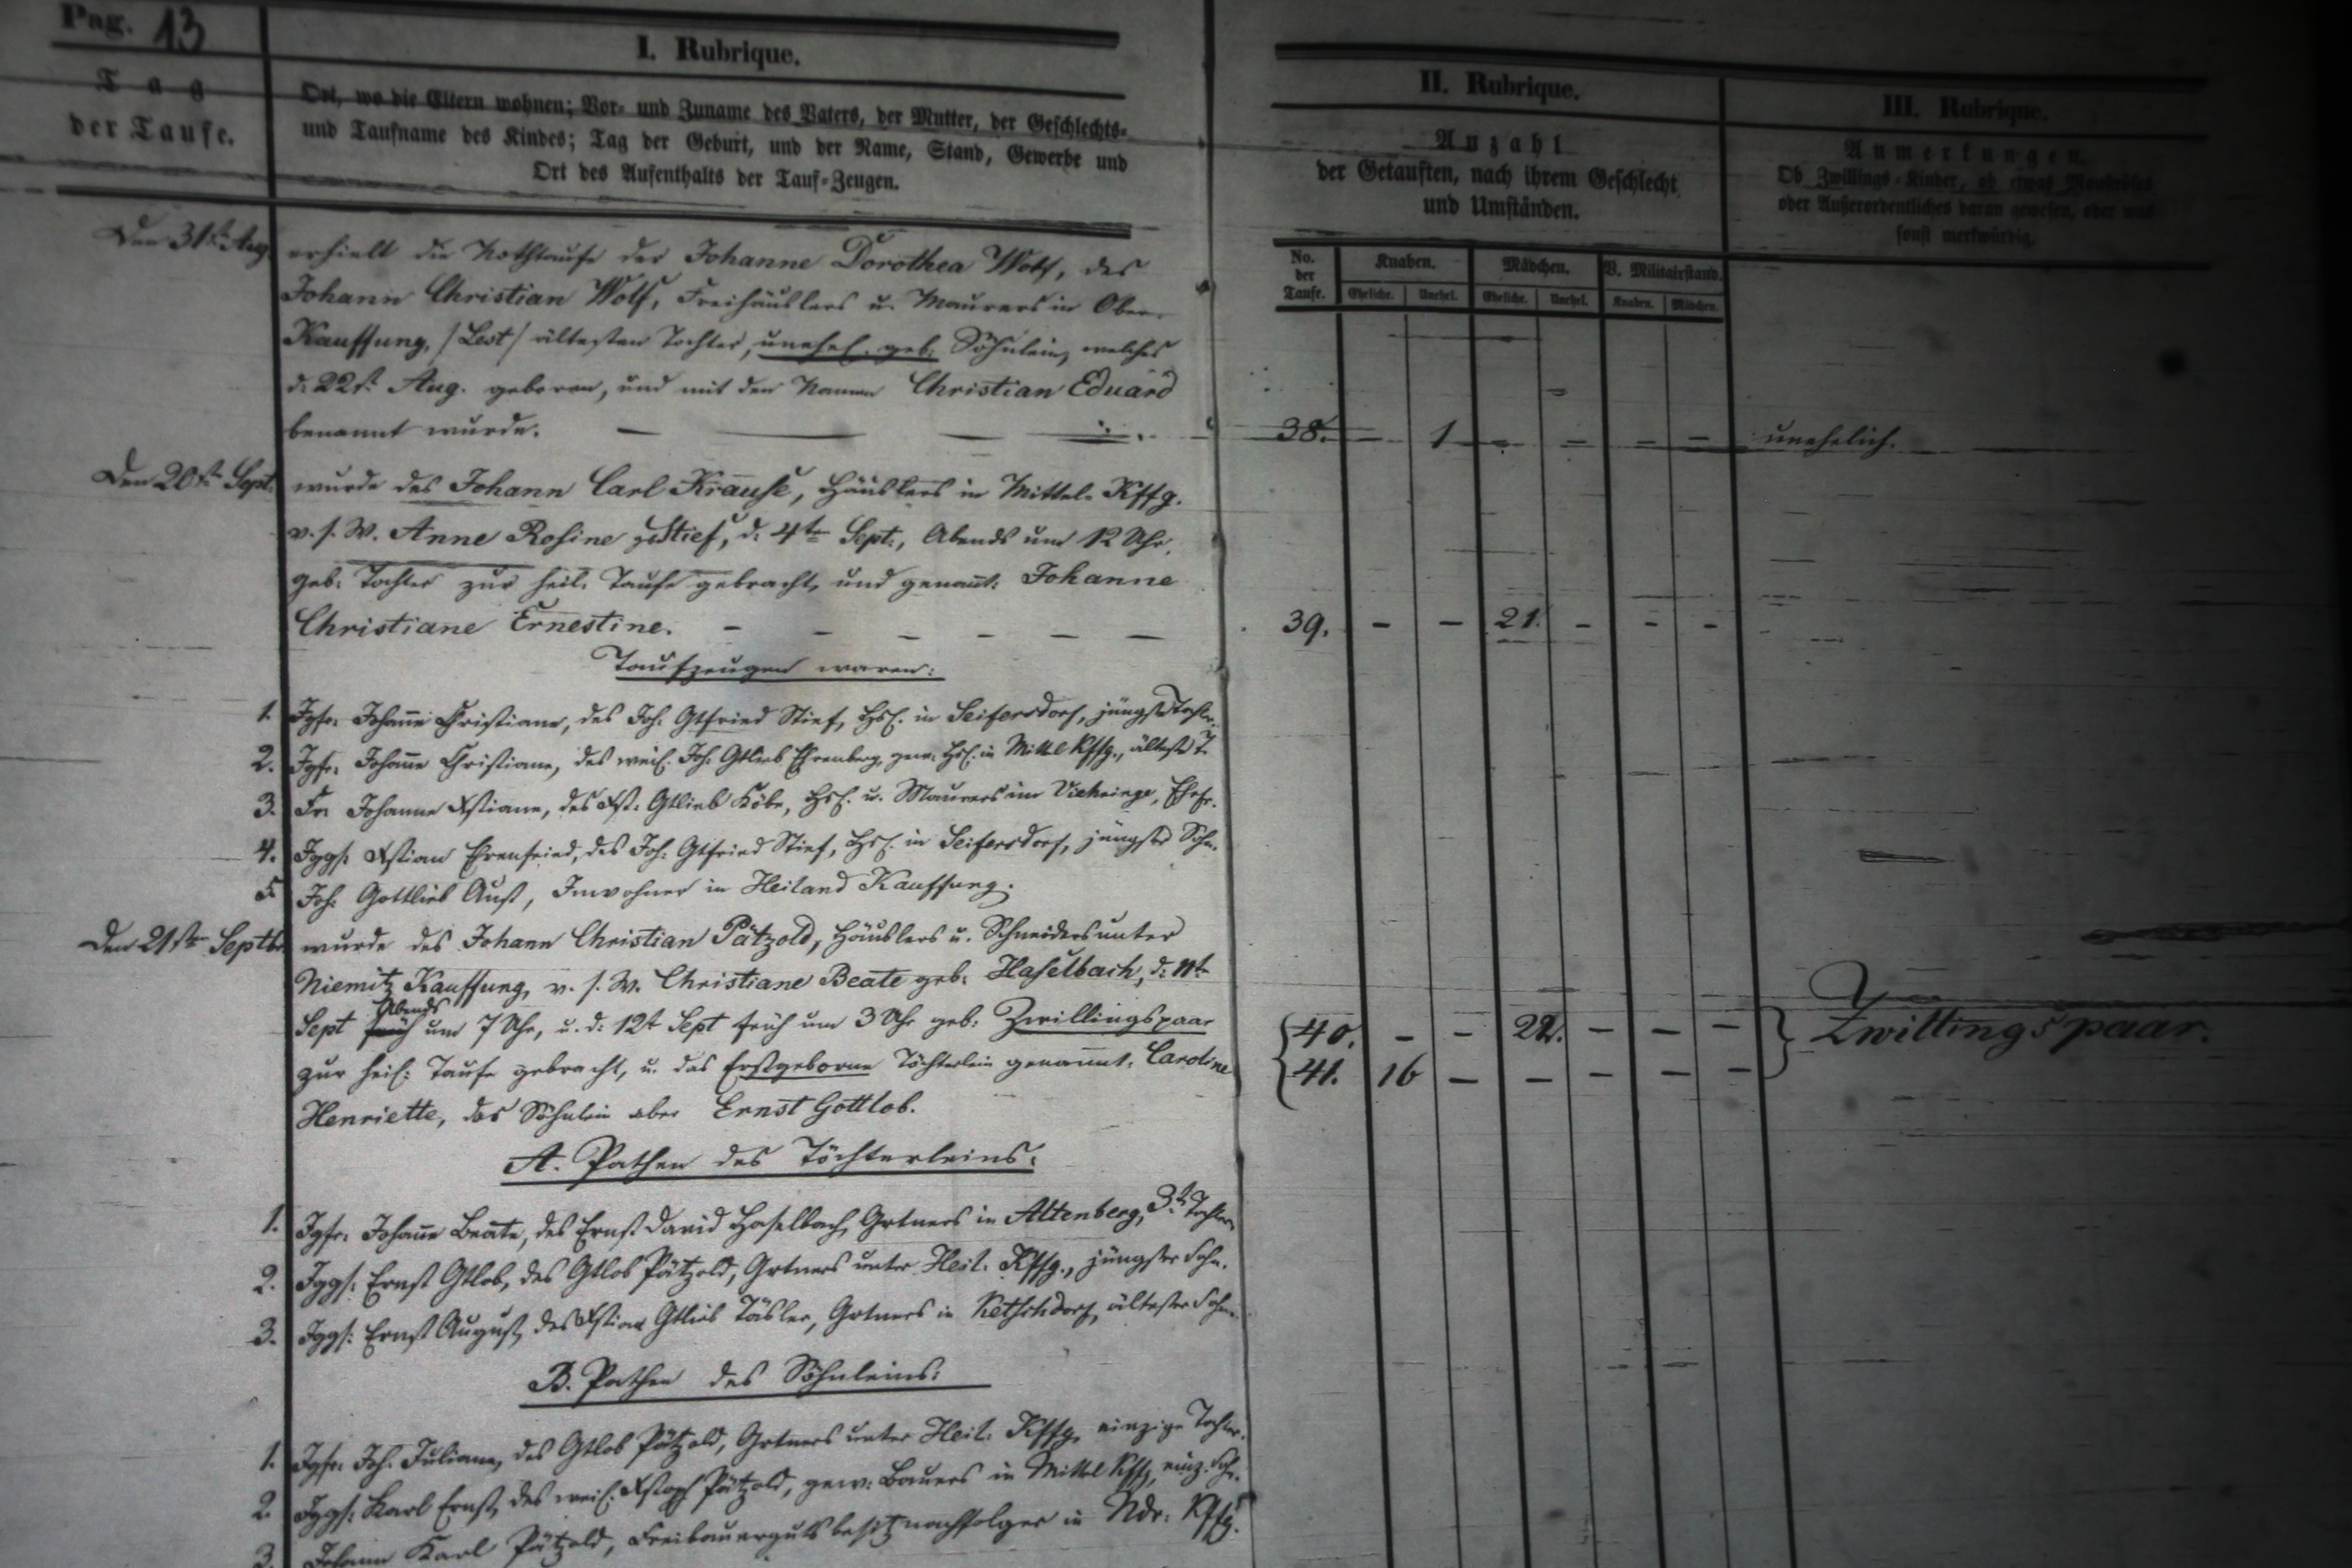 Pag. 13
I. Rubrique.
Tag
der Taufe.
Ort, wo die Eltern wohnen; Vor- und Zuname des Vaters, der Mutter, der Geschlechts-
und Taufname des Kindes; Tag der Geburt, und der Name, Stand, Gewerbe und
Ort des Aufenthalts der Tauf-Zeugen.
II. Rubrique.
Anzahl
der Getauften, nach ihrem Geschlecht
und Umständen.
III. Rubrique.
Anmerkungen.
Ob Zwillings-Kinder, ob etwas Monströses
oder Außerordentliches daran gewesen, oder was
sonst merkwürdig.
No. der Taufe.
Knaben.
Mädchen.
V. Militairstand.
Eheliche. Unehel. Eheliche. Unehel. Knaben. Mädchen.
Den 31st. Aug. erhielt die Nothtaufe der Johanne Dorothea Wolf, des
Johann Christian Wolf, Freihäuslers u. Maurers in Ober-
Kauffung, /Lest/ ältesten Tochter, unehel. geb. Söhnlein, welches
d. 22st. Aug. geboren, und mit den Namen Christian Eduard
benannt wurde. — — — 38. — 1 — — — — unehelich.
Den 20st. Sept. wurde des Johann Carl Krause, Häuslers in Mittel-Kffg.
v. s. W. Anne Rosine g. Stief, d. 4te Sept., Abends um 12 Uhr,
geb. Tochter zur heil. Taufe gebracht, und genannt: Johanne
Christiane Ernestine. — — — — — — 39. — — 21. — — —
Taufzeugen waren:
1. Jgfr. Johanne Christiane, des Joh. Gtfried Stief, Hsl. in Seifersdorf, jüngste Tochter.
2. Jgfr. Johanne Christiane, des weil. Joh. Gtlieb Ehrenberg, gew. Hsl. in Mittel Kffg., älteste T.
3. Fr. Johanne Xstiane, des Xst. Gtlieb Köbe, Hsl. u. Maurers im Viehringe, Ehefr.
4. Jggs. Xstian Ehrenfried, des Joh. Gtfried Stief, Hsl. in Seifersdorf, jüngster Sohn.
5. Joh. Gottlieb Aust, Inwohner in Heiland Kauffung.
Den 21ste Septbr. wurde des Johann Christian Pätzold, Häuslers u. Schneiders unter
Niemitz Kauffung, v. s. W. Christiane Beate geb. Haselbach, d. 11te
Abends
Sept früh um 7 Uhr, u. d. 12t Sept früh um 3 Uhr geb. Zwillingspaar 40. — — 22. — — — Zwillingspaar.
zur heil. Taufe gebracht, u. das Erstgeborne Töchterlein genannt: Caroline 41. 16 — — — — —
Henriette, das Söhnlein aber Ernst Gottlob.
A. Pathen des Töchterleins:
1. Jgfr. Johanne Beate, des Ernst David Haselbach, Grtners in Altenberg, 3te Tochter.
2. Jggs. Ernst Gtlob, des Gtlob Pätzold, Grtners unter Heil. Kffg., jüngster Sohn.
3. Jggs. Ernst August, des Xstian Gtlieb Täsler, Grtners in Ketschdorf, ältester Sohn.
B. Pathen des Söhnleins:
1. Jgfr. Joh. Juliane, des Gtlob Pätzold, Grtners unter Heil. Kffg. einzige Tochter.
2. Jggs. Karl Ernst, des weil. Xstoph Pätzold, gew. Bauers in Mittel Kffg, einz. Sohn.
3. Johann Karl Pätzold, Freibauergutsbesitznachfolger in Ndr. Kffg.